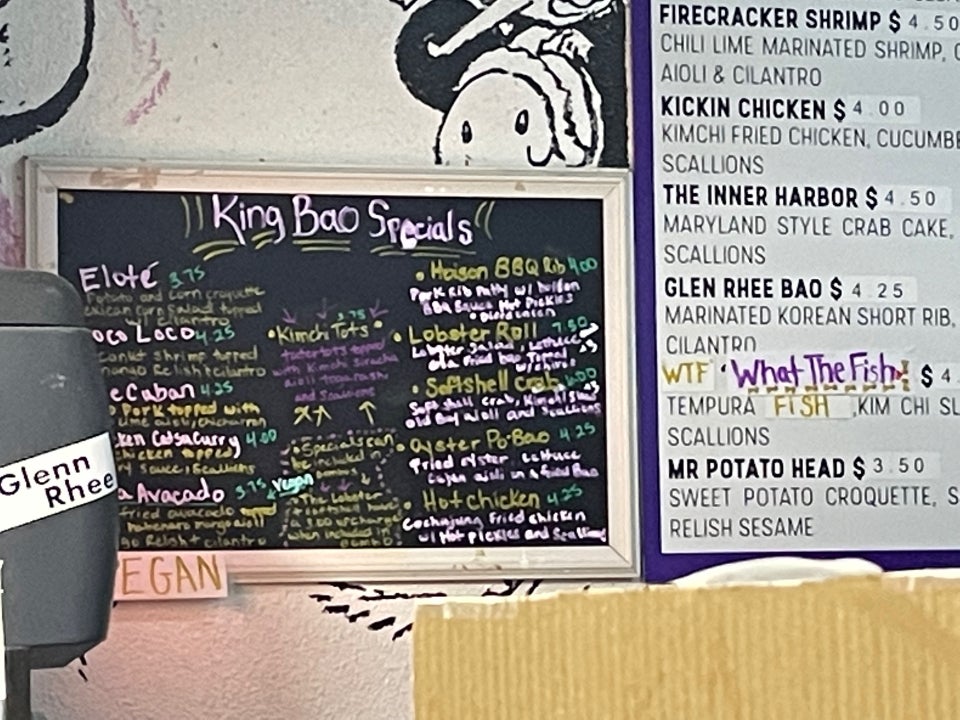 King Bao Specials
Elote 3.75
Potato and corn croquette
topped
w/ cilantro
oco Loco 4.25
shrimp topped
mango Relish + cilantro
e Cuban 4.25
Pork topped with
aioli, chicharron
ken Katsu Curry 4.00
hicken topped
sauce, Scallions
a Avacado 3.75 Vegan
fried avacado
habenero mango aioli
go Relish + cilantro
3.75
Kimchi Tots
tatertots topped
with Kimchi Siracha
aioli
and Scallions
Specials can
be included in
The Lobster
+ softshell have
a 3.00 upcharge
when included in
Hoison BBQ Rib 4.00
Pork Rib Patty w/ hoison
BBQ Sauce Hot Pickles
Lobster Roll 7.50
Lobster Salad, Lettuce
fried bao, Topped
w/ chive
Softshell Crab 6.00
Soft shell crab, Kimchi Slaw
Old Bay aioli and Scallions
Oyster Po-Bao 4.25
Fried oyster lettuce
Cajun aioli on a fried Bao
Hot chicken 4.25
Gochujang Fried chicken
w/ Hot pickles and Scallions
EGAN
Glenn
Rhee
FIRECRACKER SHRIMP $ 4.50
CHILI LIME MARINATED SHRIMP,
AIOLI & CILANTRO
KICKIN CHICKEN $ 4.00
KIMCHI FRIED CHICKEN, CUCUMBE
SCALLIONS
THE INNER HARBOR $ 4.50
MARYLAND STYLE CRAB CAKE,
SCALLIONS
GLEN RHEE BAO $ 4.25
MARINATED KOREAN SHORT RIB,
CILANTRO
WTF "What The Fish" $ 4.
TEMPURA FISH ,KIM CHI SL
SCALLIONS
MR POTATO HEAD $ 3.50
SWEET POTATO CROQUETTE, S
RELISH SESAME